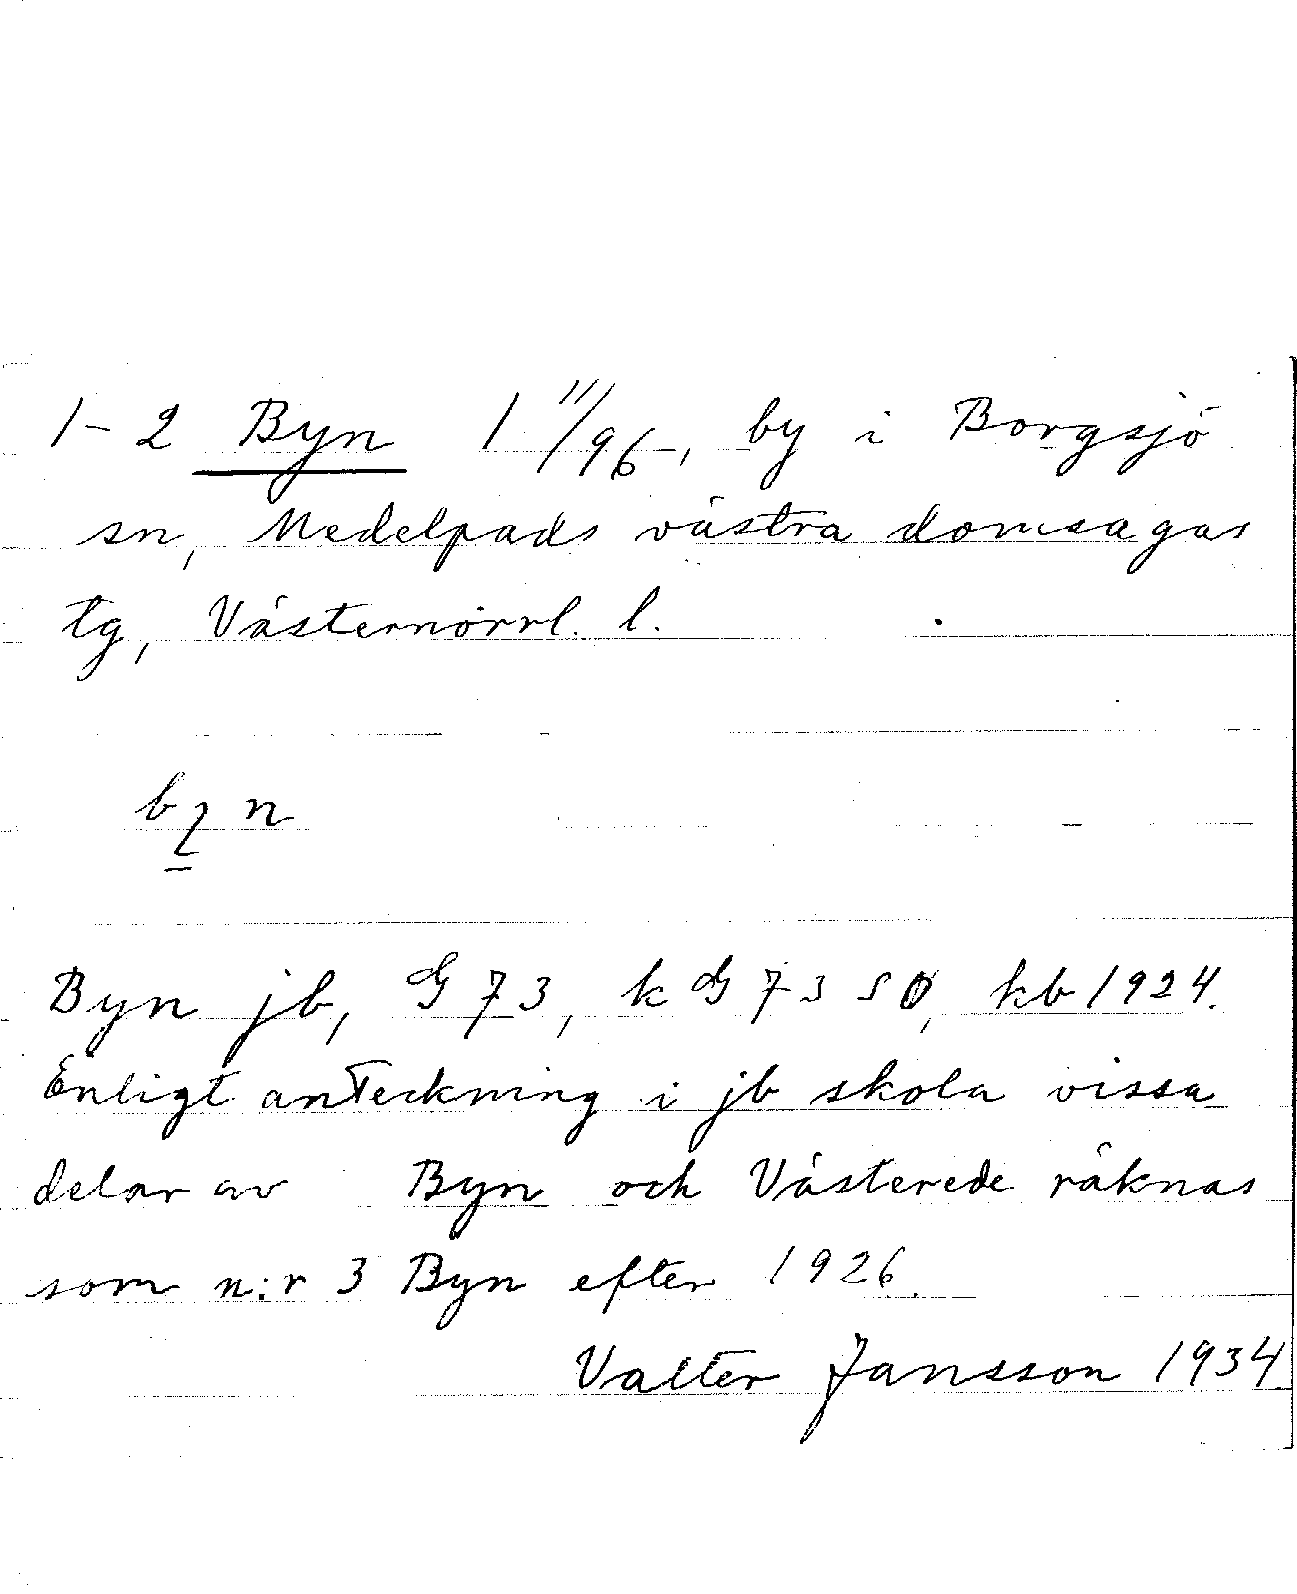 1-2 Byn 1 11/96, by i Borgsjö
sn, Medelpads västra domsagas
tg, Västernorrl. l.
Byn jb, G 73, k G 73 SO, kb 1924.
Enligt anteckning i jb skola vissa
delar av Byn och Västerede räknas
som n:r 3 Byn efter 1926.
Valter Jansson 1934